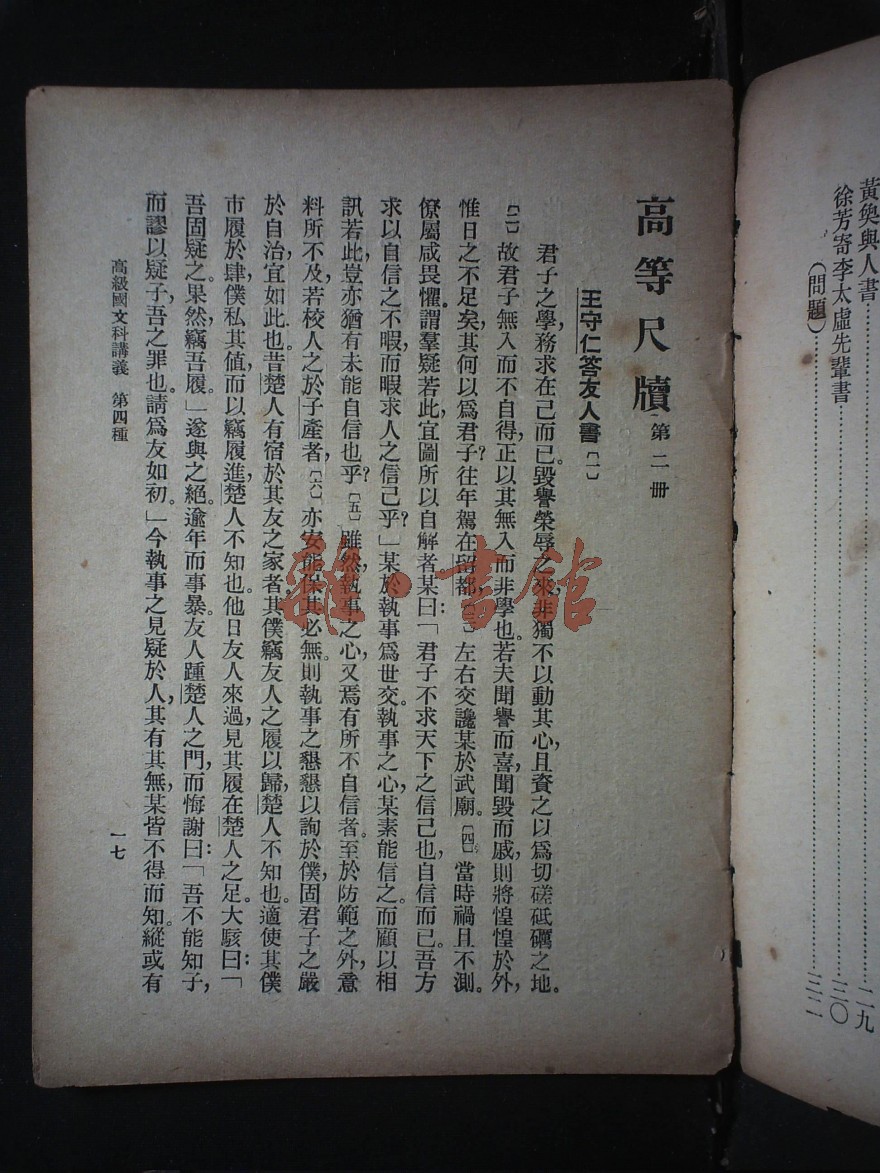 黃奐與人書……二九
徐芳寄李太虛先輩書……三〇
（問題）……三二
高等尺牘 第二冊
王守仁答友人書〔一〕
君子之學，務求在己而已。毀譽榮辱之來，非獨不以動其心，且資之以爲切磋砥礪之地。
〔二〕故君子無入而不自得，正以其無入而非學也。若夫聞譽而喜，聞毀而戚，則將惶惶於外，
惟日之不足矣，其何以爲君子？往年駕在留都，〔三〕左右交讒某於武廟。〔四〕當時禍且不測。
僚屬咸畏懼。謂羣疑若此，宜圖所以自解者。某曰：「君子不求天下之信己也，自信而已。吾方
求以自信之不暇，而暇求人之信己乎？」某於執事爲世交。執事之心，某素能信之。而顧以相
訊若此，豈亦猶有未能自信也乎？〔五〕雖然，執事之心，又焉有所不自信者。至於防範之外，意
料所不及，若校人之於子產者，〔六〕亦安能保其必無。則執事之懇懇以詢於僕，固君子之嚴
於自治，宜如此也。昔楚人有宿於其友之家者，其僕竊友人之履以歸，楚人不知也。適使其僕
市履於肆，僕私其值，而以竊履進，楚人不知也。他日友人來過，見其履在楚人之足。大駭曰：「
吾固疑之。果然，竊吾履。」遂與之絕。逾年而事暴。友人踵楚人之門，而悔謝曰：「吾不能知子，
而謬以疑子，吾之罪也。請爲友如初。」今執事之見疑於人，其有其無，某皆不得而知。縱或有
高級國文科講義 第四種
一七
雜·書館